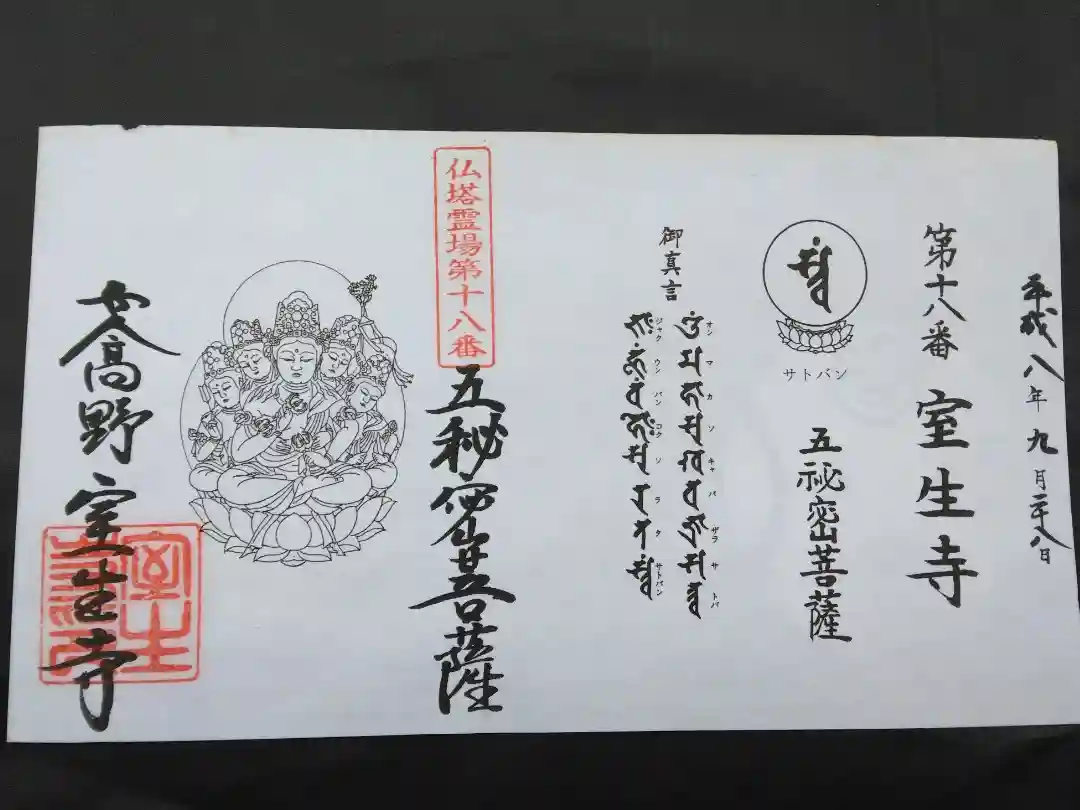 平成八年 九月二十八日
第十八番 室生寺
サトバン
五祕密菩薩
御真言
オン マ カ ソ キャ バ ザラ サ トバ
ジャク ウン バン コク ソ ラ タ サトバン
仏塔霊場第十八番
五秘密菩薩
女人高野 室生寺
室生